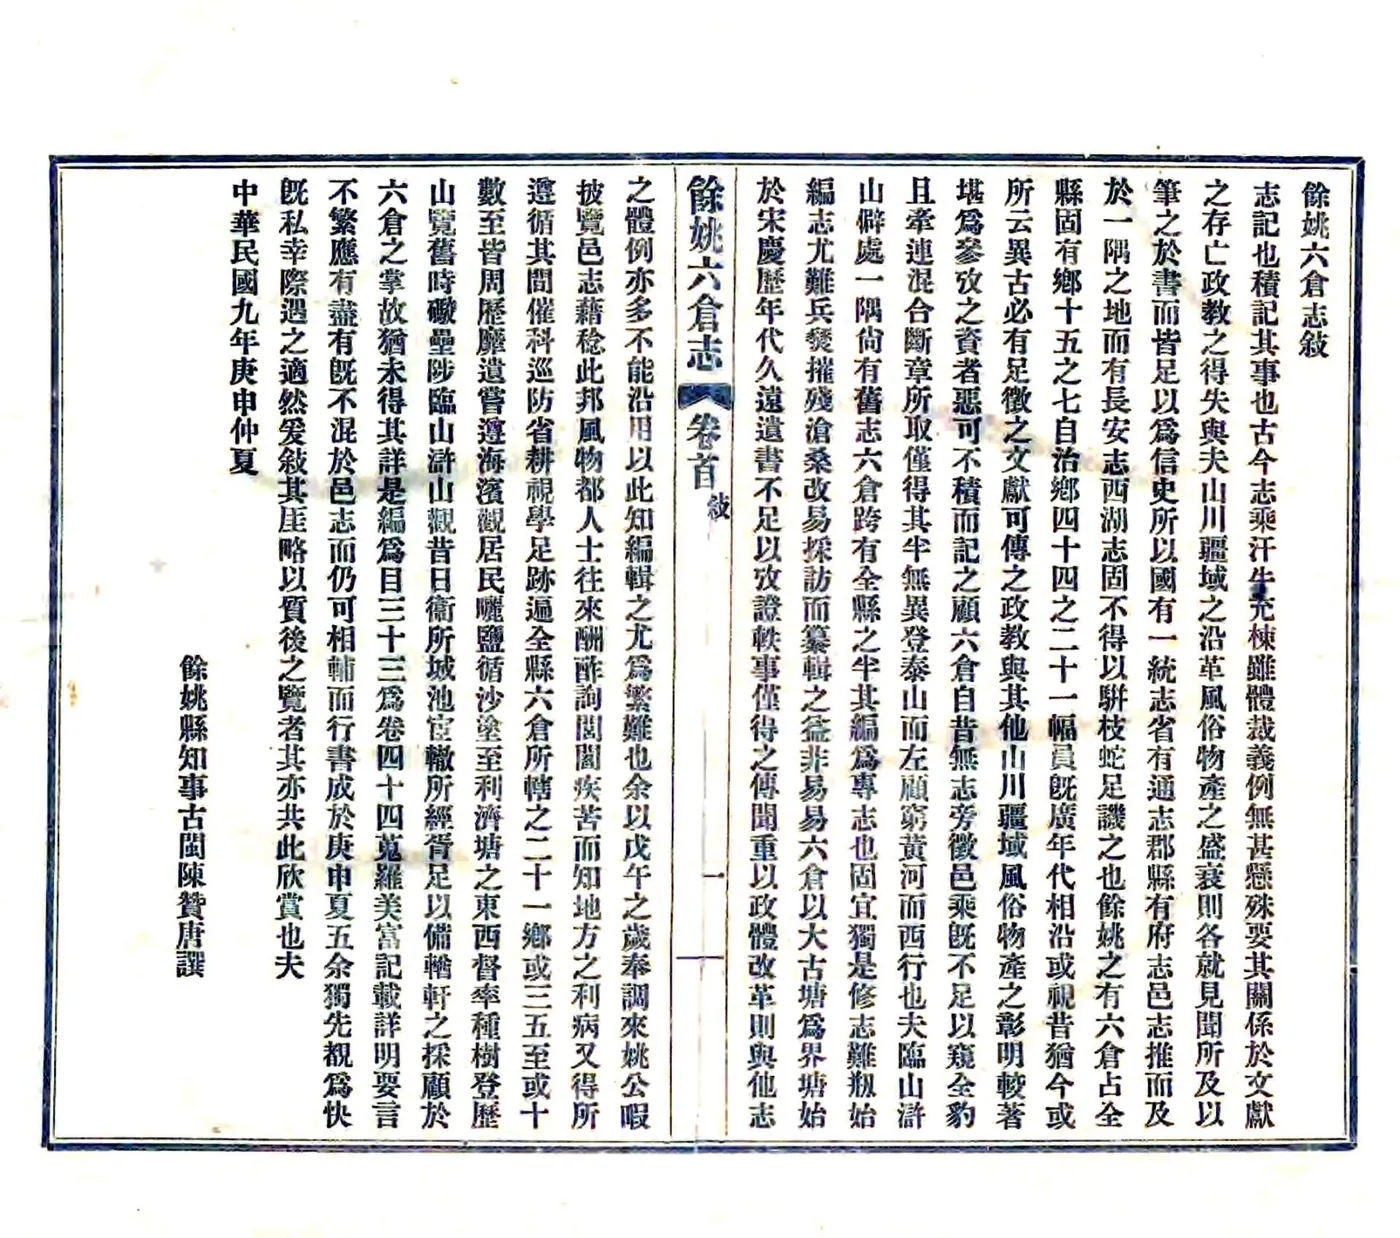 餘姚六倉志敍
志記也積記其事也古今志乘汗牛充棟雖體裁義例無甚懸殊要其關係於文獻
之存亡政教之得失與夫山川疆域之沿革風俗物產之盛衰則各就見聞所及以
筆之於書而皆足以爲信史所以國有一統志省有通志郡縣有府志邑志推而及
於一隅之地而有長安志西湖志固不得以駢枝蛇足譏之也餘姚之有六倉占全
縣固有鄉十五之七自治鄉四十四之二十一幅員旣廣年代相沿或視昔猶今或
所云異古必有足徵之文獻可傳之政教與其他山川疆域風俗物產之彰明較著
堪爲參攷之資者惡可不積而記之顧六倉自昔無志旁徵邑乘旣不足以窺全豹
且牽連混合斷章所取僅得其半無異登泰山而左顧窮黃河而西行也夫臨山滸
山僻處一隅尙有舊志六倉跨有全縣之半其編爲專志也固宜獨是修志難剏始
編志尤難兵燹摧殘滄桑改易採訪而纂輯之益非易易六倉以大古塘爲界塘始
於宋慶歷年代久遠遺書不足以攷證軼事僅得之傳聞重以政體改革則與他志
餘姚六倉志 卷首 敍 一
之體例亦多不能沿用以此知編輯之尤爲繁難也余以戊午之歲奉調來姚公暇
披覽邑志藉稔此邦風物都人士往來酬酢詢閭閻疾苦而知地方之利病又得所
遵循其間催科巡防省耕視學足跡遍全縣六倉所轄之二十一鄉或三五至或十
數至皆周歷靡遺嘗遵海濱觀居民曬鹽循沙塗至利濟塘之東西督率種樹登歷
山覽舊時礮壘陟臨山滸山觀昔日衞所城池宦轍所經胥足以備輶軒之採顧於
六倉之掌故猶未得其詳是編爲目三十三爲卷四十四蒐羅美富記載詳明要言
不繁應有盡有旣不混於邑志而仍可相輔而行書成於庚申夏五余獨先覩爲快
旣私幸際遇之適然爰敍其厓略以質後之覽者其亦共此欣賞也夫
中華民國九年庚申仲夏
餘姚縣知事古閩陳贊唐譔